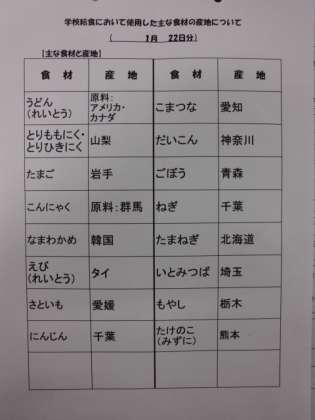 学校給食において使用した主な食材の産地について
( 1月 22日分)
【主な食材と産地】
食 材 産 地 食 材 産 地
うどん
(れいとう)
原料:
アメリカ・
カナダ
こまつな 愛知
とりももにく・
とりひきにく
山梨 だいこん 神奈川
たまご 岩手 ごぼう 青森
こんにゃく 原料:群馬 ねぎ 千葉
なまわかめ 韓国 たまねぎ 北海道
えび
(れいとう)
タイ いとみつば 埼玉
さといも 愛媛 もやし 栃木
にんじん 千葉
たけのこ
(みずに)
熊本